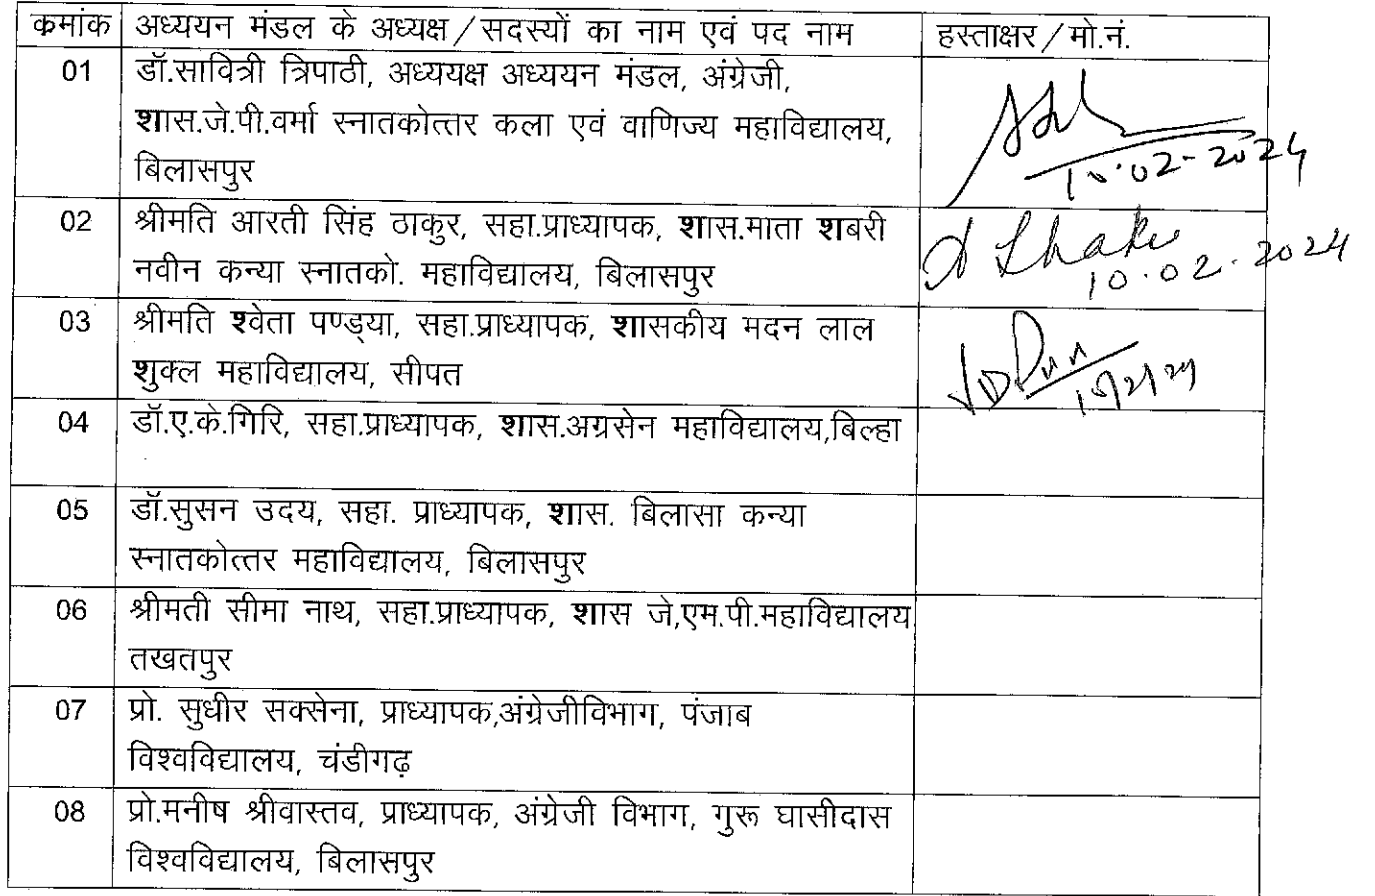 क्रमांक अध्ययन मंडल के अध्यक्ष/सदस्यों का नाम एवं पद नाम हस्ताक्षर/मो.नं.
01 डॉ.सावित्री त्रिपाठी, अध्ययक्ष अध्ययन मंडल, अंग्रेजी,
शास.जे.पी.वर्मा स्नातकोत्तर कला एवं वाणिज्य महाविद्यालय,
बिलासपुर 10.02-2024
02 श्रीमति आरती सिंह ठाकुर, सहा.प्राध्यापक, शास.माता शबरी
नवीन कन्या स्नातको. महाविद्यालय, बिलासपुर 10.02.2024
03 श्रीमति श्वेता पण्ड्या, सहा.प्राध्यापक, शासकीय मदन लाल
शुक्ल महाविद्यालय, सीपत 10/2/24
04 डॉ.ए.के.गिरि, सहा.प्राध्यापक, शास.अग्रसेन महाविद्यालय,बिल्हा
05 डॉ.सुसन उदय, सहा. प्राध्यापक, शास. बिलासा कन्या
स्नातकोत्तर महाविद्यालय, बिलासपुर
06 श्रीमती सीमा नाथ, सहा.प्राध्यापक, शास जे,एम.पी.महाविद्यालय
तखतपुर
07 प्रो. सुधीर सक्सेना, प्राध्यापक,अंग्रेजीविभाग, पंजाब
विश्वविद्यालय, चंडीगढ़
08 प्रो.मनीष श्रीवास्तव, प्राध्यापक, अंग्रेजी विभाग, गुरू घासीदास
विश्वविद्यालय, बिलासपुर